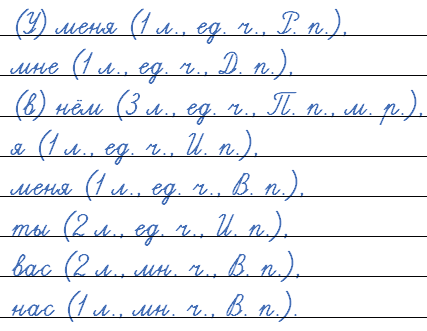 (У) меня (1 л., ед. ч., Р. п.),
мне (1 л., ед. ч., Д. п.),
(в) нём (3 л., ед. ч., П. п., м. р.),
я (1 л., ед. ч., И. п.),
меня (1 л., ед. ч., В. п.),
ты (2 л., ед. ч., И. п.),
вас (2 л., мн. ч., В. п.),
нас (1 л., мн. ч., В. п.).